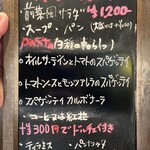 前菜風サラダ ¥1,200-
・スープ・パン
PASTA
・オイルサーディンとトマトのスパゲティ
・トマトソースとモッツァレラのスパゲティ
・スパゲティ カルボナーラ
・コーヒー又は紅茶
+¥300円でドルチェ付き
ティラミス